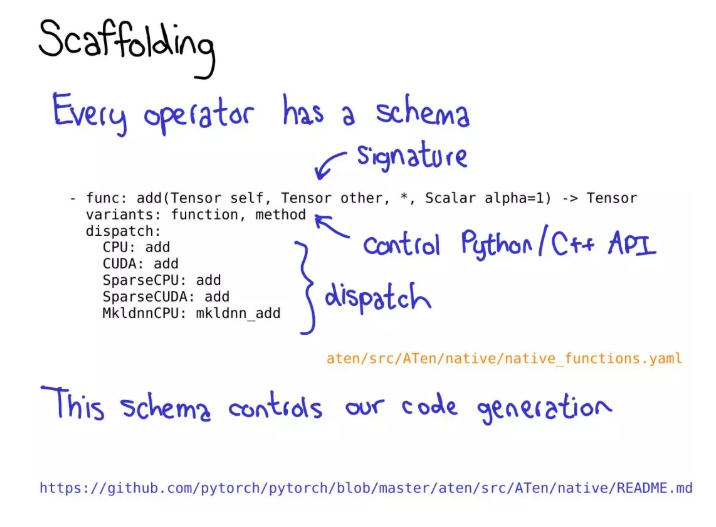 Scaffolding
Every operator has a schema
signature
- func: add(Tensor self, Tensor other, *, Scalar alpha=1) -> Tensor
variants: function, method
control Python/C++ API
dispatch:
CPU: add
CUDA: add
SparseCPU: add
SparseCUDA: add
MkldnnCPU: mkldnn_add
dispatch
aten/src/ATen/native/native_functions.yaml
This schema controls our code generation
https://github.com/pytorch/pytorch/blob/master/aten/src/ATen/native/README.md